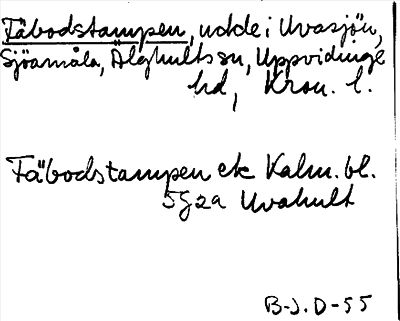 Fäbodstampen, udde i Uvasjön,
Sjöamåla, Älghults sn, Uppvidinge
hd, Kron. l.
Fäbodstampen ek Kalm. bl.
5g2a Uvahult
B-J.D-55